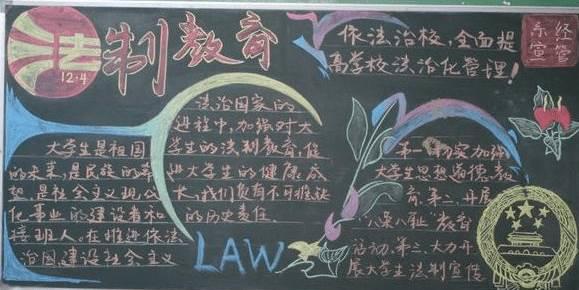 法
12.4
法制教育
依法治校,全面提
高学校法治化管理!
经管
系宣
大学生是祖国
的未来,是民族的希
望,是社会主义现代
化事业的建设者和
接班人。在推进依法
治国建设社会主义
法治国家的
进程中,加强对大
学生的法制教育,促
进大学生的健康成
长,我们负有不可推卸
的历史责任.
LAW
第一
加强
大学生思想道德教
育.第二.开展
"八荣八耻"教育
活动.第三.大力开
展大学生法制宣传